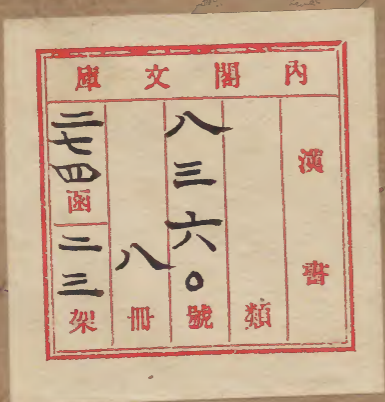 內閣文庫
漢書
類
八三六〇號
八冊
二七四函
二三架